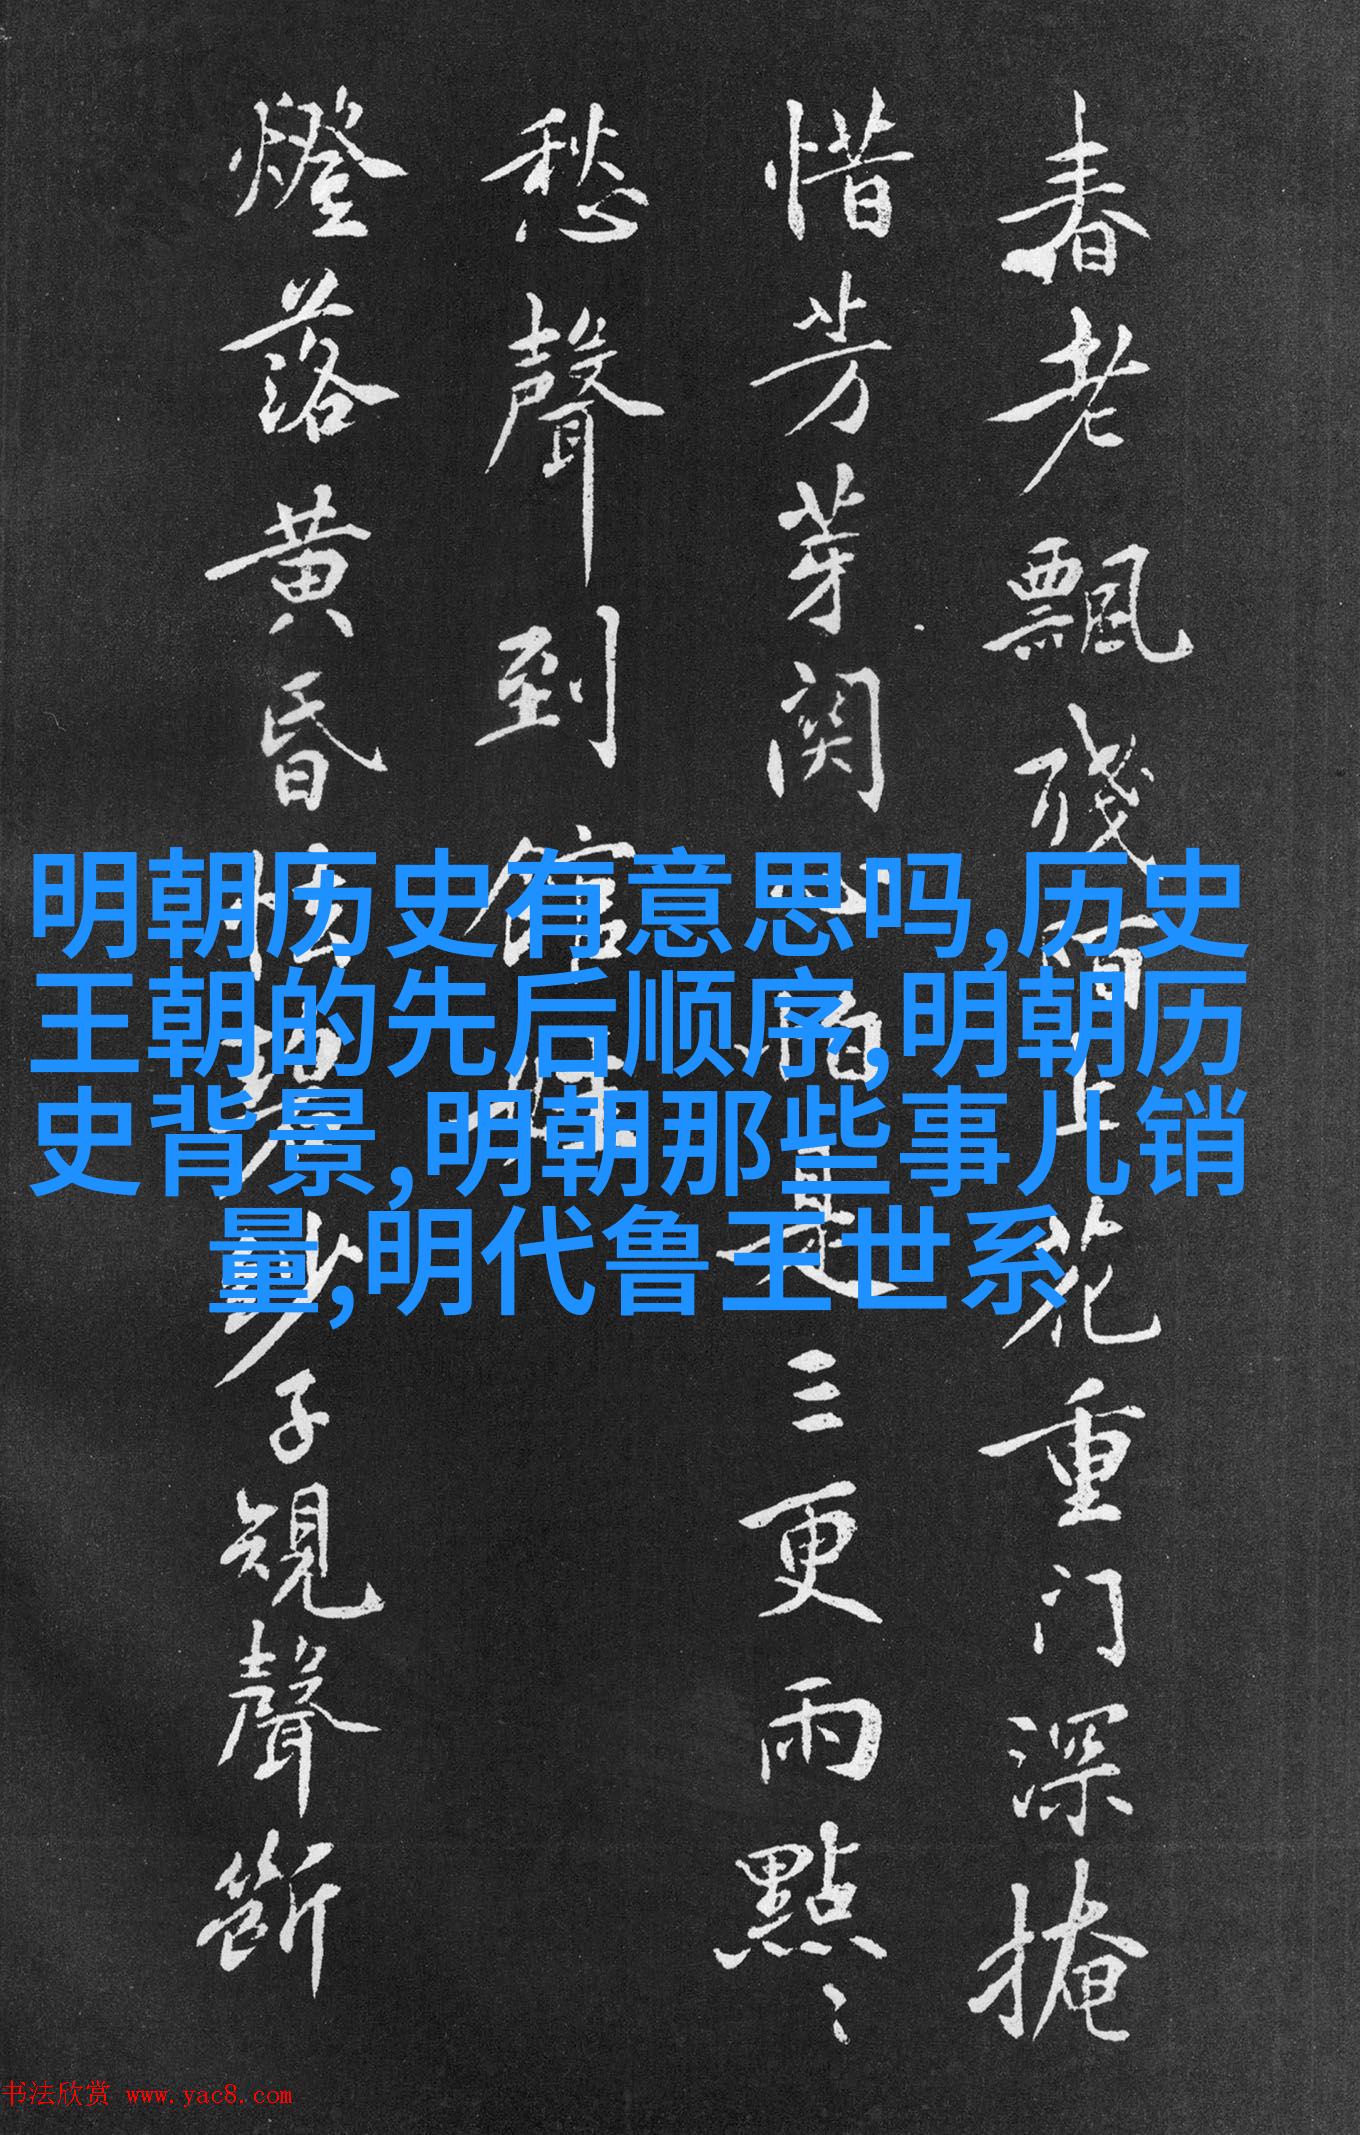 春老飄殘陌上花重门深掩
惜芳芽関心怕是三更雨點〻
愁聲到館娃
燈落黄昏怯碧紗子規聲斷
明朝历史有意思吗,历史
王朝的先后顺序,明朝历
史背景,明朝那些事儿销
量,明代鲁王世系
书法欣赏 www.yac8.com